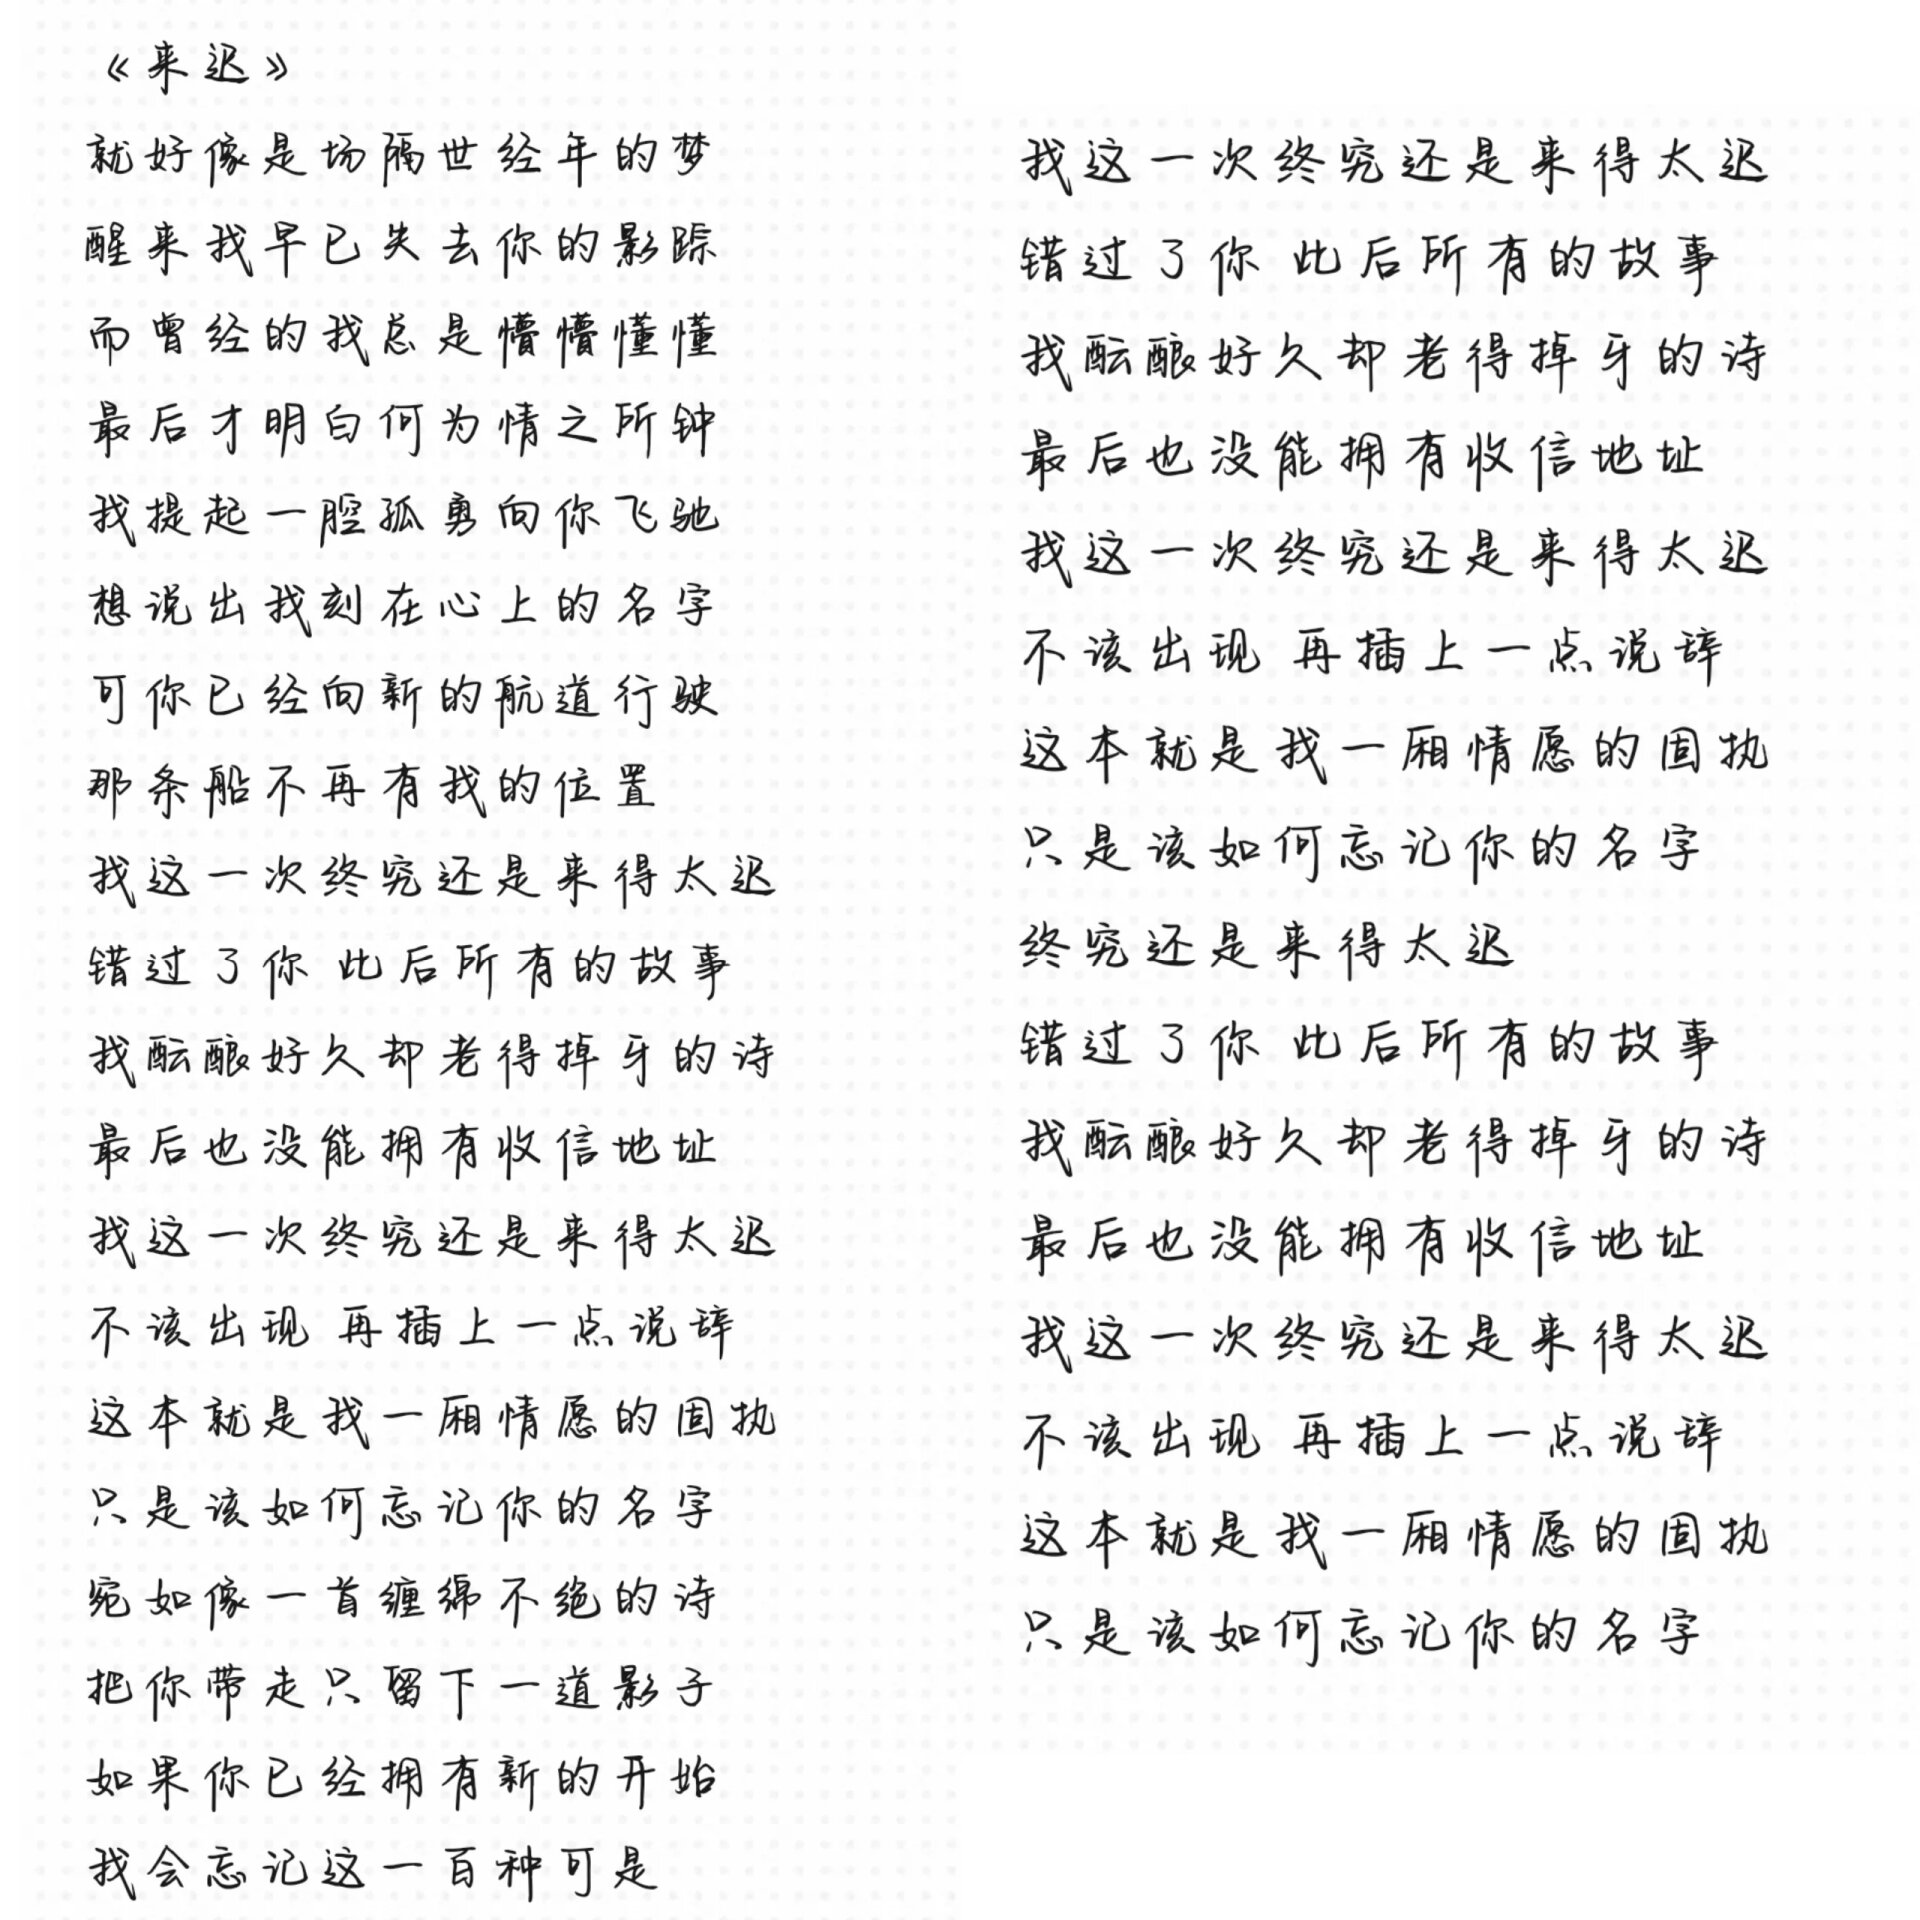 《来迟》
就好像是场隔世经年的梦
醒来我早已失去你的影踪
而曾经的我总是懵懵懂懂
最后才明白何为情之所钟
我提起一腔孤勇向你飞驰
想说出我刻在心上的名字
可你已经向新的航道行驶
那条船不再有我的位置
我这一次终究还是来得太迟
错过了你 此后所有的故事
我酝酿好久却老得掉牙的诗
最后也没能拥有收信地址
我这一次终究还是来得太迟
不该出现 再插上一点说辞
这本就是我一厢情愿的固执
只是该如何忘记你的名字
宛如像一首缠绵不绝的诗
把你带走只留下一道影子
如果你已经拥有新的开始
我会忘记这一百种可是
我这一次终究还是来得太迟
错过了你 此后所有的故事
我酝酿好久却老得掉牙的诗
最后也没能拥有收信地址
我这一次终究还是来得太迟
不该出现 再插上一点说辞
这本就是我一厢情愿的固执
只是该如何忘记你的名字
终究还是来得太迟
错过了你 此后所有的故事
我酝酿好久却老得掉牙的诗
最后也没能拥有收信地址
我这一次终究还是来得太迟
不该出现 再插上一点说辞
这本就是我一厢情愿的固执
只是该如何忘记你的名字